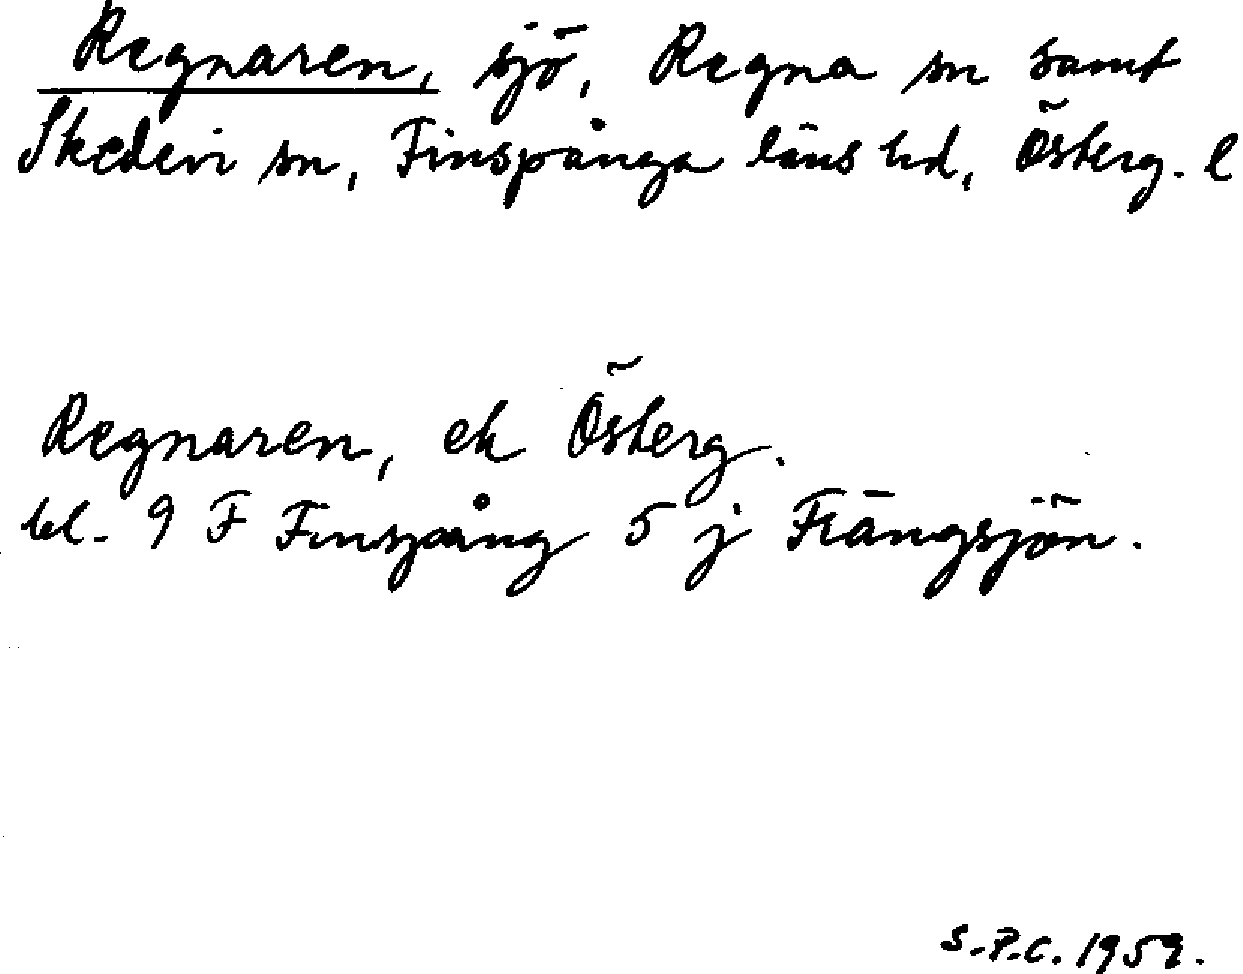 Regnaren, sjö, Regna sn samt
Skedevi sn, Finspånga läns hd, Österg. l
Regnaren, ek Österg.
bl. 9 F Finspång 5 j Flängsjön.
S.P.C. 1959.